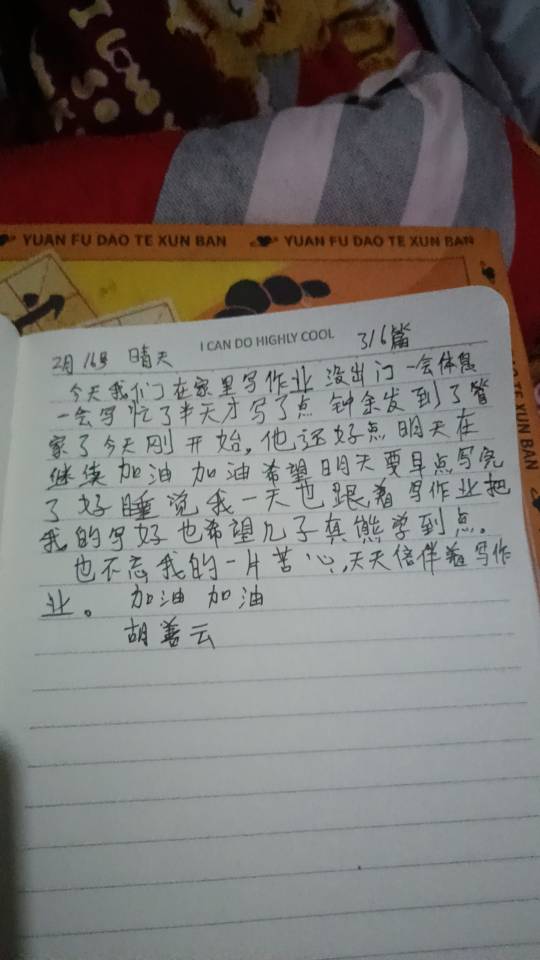 I LOVE
SO
YUAN FU DAO TE XUN BAN
YUAN FU DAO TE XUN BAN
I CAN DO HIGHLY COOL
2月16号 晴天 316篇
今天我们在家里写作业 没出门 一会体息
一会写 忙了半天才写了点 钟余发到了管
家了今天刚开始,他还好点明天在
继续 加油 加油希望明天要早点写完
了好睡觉我一天也跟着写作业把
我的字好也希望儿子真能学到点。
也不忘我的一片苦心,天天倍伴着写作
业。 加油 加油
胡善云
TE XUN BAN